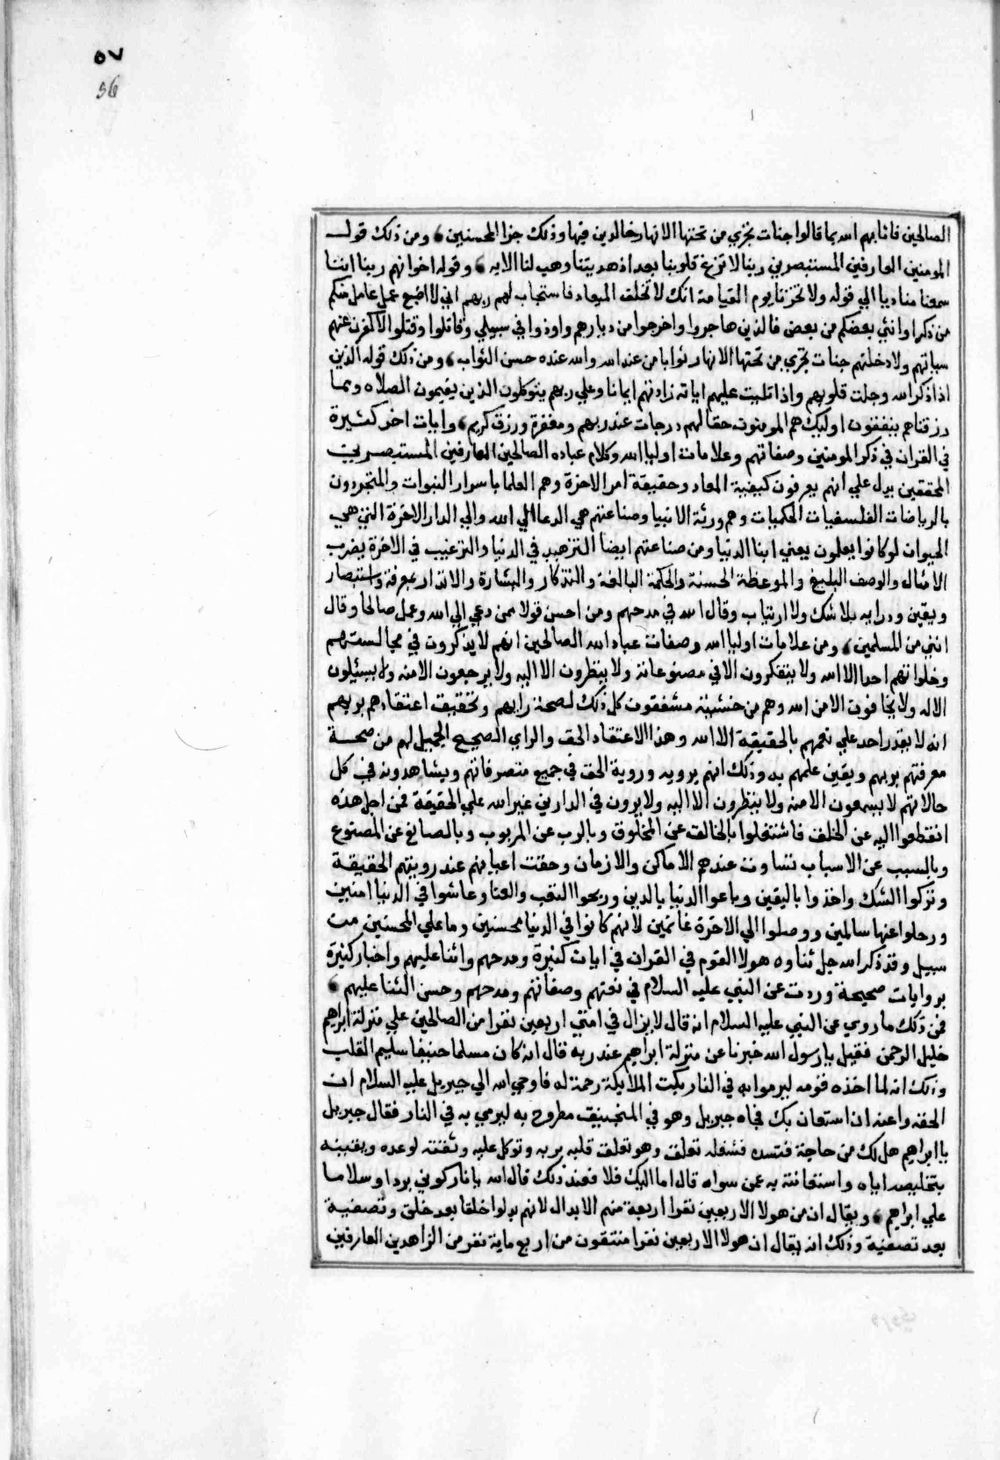 ٥٧
56
الصالحين فاثابهم الله بما قالوا جنات تجري من تحتها الانهار خالدين فيها وذلك جزا المحسنين، ومن ذلك قول
المومنين العارفين المستبصرين ربنا لا تزغ قلوبنا بعد اذ هديتنا وهب لنا الايه، وقوله اخوانهم ربنا اننا
سمعنا مناديا الي قوله ولا تخزنا يوم القيامة انك لا تخلف الميعاد فاستجاب لهم ربهم اني لا اضيع عمل عامل منكم
من ذكر او انثي بعضكم من بعض فالذين هاجروا واخرجوا من ديارهم واوذوا في سبيلي وقاتلوا وقتلوا لاكفرن عنهم
سياتهم ولادخلنهم جنات تجري من تحتها الانهار ثوابا من عند الله والله عنده حسن الثواب، ومن ذلك قوله الذين
اذا ذكر الله وجلت قلوبهم واذا تليت عليهم اياته زادتهم ايمانا وعلي ربهم يتوكلون الذين يقيمون الصلاه ومما
رزقناهم ينفقون اوليك هم المومنون حقا لهم درجات عند ربهم ومغفرة ورزق كريم، وايات اخر كثيرة
في القران في ذكر المومنين وصفاتهم وعلامات اوليا الله وكلام عباده الصالحين العارفين المستبصرين
المحققين يدل علي انهم يعرفون كيفية المعاد وحقيقة امر الاخرة وهم العلما باسرار النبوات والمتجردون
بالرياضات الفلسفيات الحكميات وهم ورثة الانبيا وصناعتهم هي الدعا الي الله والي الدار الاخرة التي هي
الحيوان لو كانوا يعلمون يعني ابنا الدنيا ومن صناعتهم ايضا التزهيد في الدنيا والترغيب في الاخرة بضرب
الامثال والوصف البليغ والموعظة الحسنة والحكمة البالغة والتذكار والبشارة والانذار بمعرفة واستبصار
ويقين ودرايه بلا شك ولا ارتياب وقال الله في مدحهم ومن احسن قولا ممن دعي الي الله وعمل صالحا وقال
انني من المسلمين، ومن علامات اوليا الله وصفات عباد الله الصالحين انهم لا يذكرون في مجالستهم
وخلواتهم احدا الا الله ولا يتفكرون الا في مصنوعاته ولا ينظرون الا اليه ولا يرجعون الا منه ولا يسئلون
الا له ولا يخافون الا من الله وهم من خشيته مشفقون كل ذلك لصحة رايهم وتحقيقة اعتقادهم بربهم
انه لا يقدر احد علي نفعهم بالحقيقة الا الله وهذا الاعتقاد الحق والراي الصحيح الجميل لهم من صحة
معرفتهم بربهم ويقين علمهم به وذلك انهم يرويه وروية الحق في جميع متصرفاتهم ويشاهدونه في كل
حالاتهم لا يسمعون الا منه ولا ينظرون الا اليه ولا يرون في الدارين غير الله علي الحقيقة فمن اجل هذه
انقطعوا اليه عن الخلق فاشتغلوا بالخالق عن المخلوق وبالرب عن المربوب وبالصانع عن المصنوع
وبالسبب عن الاسباب تساوت عندهم الاماكن والازمان وحقت اعيانهم عند رويتهم الحقيقة
وتركوا الشك واخذوا باليقين وباعوا الدنيا بالدين وربحوا التعب والعنا وعاشوا في الدنيا امنين
ورحلوا عنها سالمين ووصلوا الي الاخرة غانمين لانهم كانوا في الدنيا محسنين وما علي المحسنين من
سبيل وقد ذكر الله جل ثناوه هولا القوم في القران في ايات كثيرة ومدحهم واثنا عليهم واخبار كثيرة
بروايات صحيحة وردت عن النبي عليه السلام في نعتهم وصفاتهم ومدحهم وحسن الثنا عليهم،
فمن ذلك ما روي عن النبي عليه السلام انه قال لا يزال في امتي اربعين نفرا من الصالحين علي منزلة ابراهيم
خليل الرحمن فقيل يا رسول الله خبرنا عن منزلة ابراهيم عند ربه قال انه كان مسلما حنيفا سليم القلب
وذلك انه لما اخذه قومه ليرموا به في النار بكت الملايكة رحمة له فاوحي الله الي جبريل عليه السلام ان
الحقه واعنه ان استعان بك فجاه جبريل وهو في المنجنيق مطروح به ليرمي به في النار فقال جبريل
يا ابراهيم هل لك من حاجة فشغله تعلق قلبه بربه وتوكل عليه وثقته لوعده ويقينه
بتخليصه اياه واستغانته به عن سواه قال اما اليك فلا فعند ذلك قال الله يا نار كوني بردا وسلاما
علي ابراهيم، ويقال ان من هولا الاربعين نفرا اربعة منهم الابدال لانهم بدلوا خلقا بعد خلق وتصفية
بعد تصفية وذلك انه يقال ان هولا الاربعين نفرا منتقون من اربع ماية نفر من الزاهدين العارفين